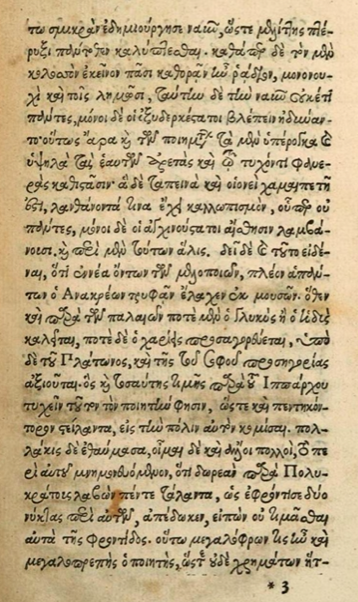 τω σμικρὰν ἐδημιούργησε ναῦν, ὥςτε μυίης πτέ-
ρυξι πάντοθεν καλύπτεσθαι. καθάπερ δὲ τὸν μὲν
κολοσσὸν ἐκεῖνον πᾶσι καθορᾶν ἦν ῥάδιον, μονονου-
χὶ καὶ τοῖς λημῶσι, ταύτην δὲ τὴν ναῦν οὐκέτι
πάντες, μόνοι δὲ οἱ ὀξυδερκέςατοι βλέπειν ἠδύναν-
το· οὕτως ἄρα καὶ τῶν ποιημάτων τὰ μὲν ὑπέρογκα καὶ
ὑψηλὰ τὰς ἑαυτῶν ἀρετὰς καὶ τῷ τυχόντι φανε-
ρὰς καθιςᾶσιν· ἃ δὲ ταπεινὰ καὶ οἱονεὶ χαμαιπετῆ
ἐςι, λανθάνοντά τινα ἔχει καλλωπισμὸν, οὗπερ οὐ
πάντες, μόνοι δὲ οἱ ἀγχινούςατοι αἴσθησιν λαμβά-
νουσι. καὶ περὶ μὲν τούτων ἅλις. δεῖ δὲ καὶ τοῦτο εἰδέ-
ναι, ὅτι ἐννέα ὄντων τῶν μελοποιῶν, πλέον ἁπάν-
των ὁ Ἀνακρέων τρυφᾶν ἔλαχεν ἐκ μουσῶν. ὅθεν
καὶ παρὰ τῶν παλαιῶν ποτὲ μὲν ὁ γλυκὺς ἢ ὁ ἡδὺς
καλεῖται, ποτὲ δὲ ὁ χαρίεις προσαγορεύεται, ὑπὸ
δὲ τοῦ Πλάτωνος, καὶ τῆς τοῦ σοφοῦ προσηγορίας
ἀξιοῦται. ὃς καὶ τοσαύτης τιμῆς παρὰ τοῦ Ἱππάρχου
τυχεῖν τοῦτον τὸν ποιητὴν φησιν, ὥςτε καὶ πεντηκόν-
τορον ςείλαντα, εἰς τὴν πόλιν αὐτὸν κομίσαι. πολ-
λάκις δὲ ἐθαύμασα, οἶμαι δὲ καὶ ἄλλοι πολλοὶ, οἱ πε-
ρὶ αὐτοῦ μνημονευόμενον, ὅτι δωρεὰν παρὰ Πολυ-
κράτους λαβὼν πέντε τάλαντα, ὡς ἐφρόντισε δύο
νύκτας περὶ αὐτῶν, ἀπέδωκεν, εἰπὼν οὐ τιμᾶσθαι
αὐτὰ τῆς φροντίδος. οὕτω μεγαλόφρων τις ἦν καὶ
μεγαλοπρεπὴς ὁ ποιητὴς, ὥςτε οὐδὲ χρημάτων ἥτ-
* 3